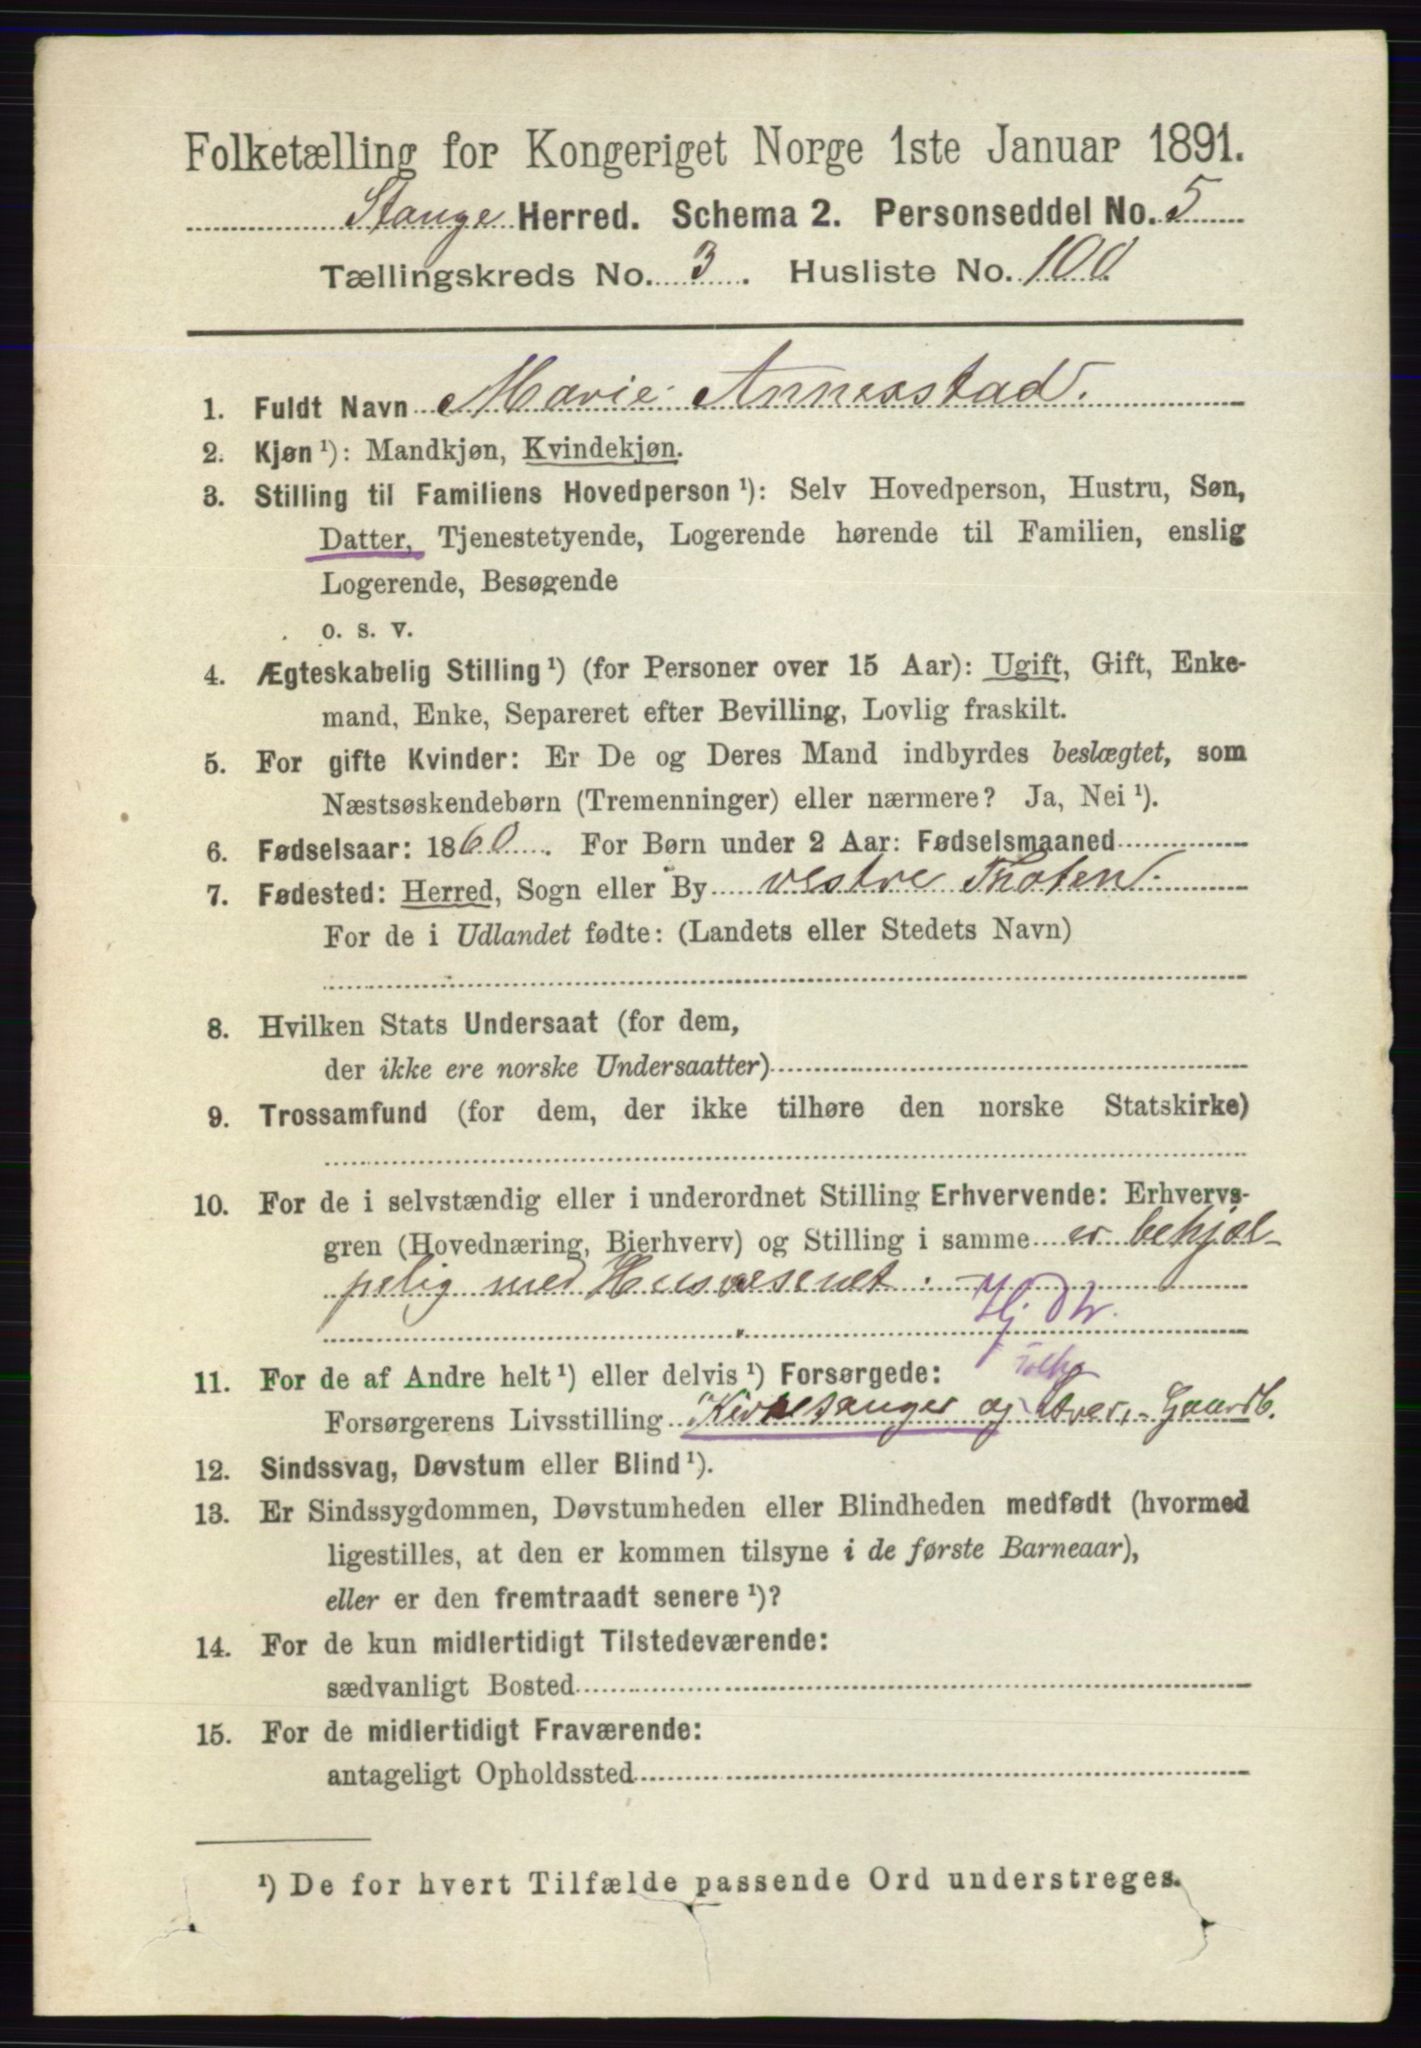 Folketælling for Kongeriget Norge 1ste Januar 1891.
Stange Herred. Schema 2. Personseddel No. 5
Tællingskreds No. 3. Husliste No. 100
1. Fuldt Navn Marie Annexstad.
2. Kjøn ¹): Mandkjøn, Kvindekjøn.
3. Stilling til Familiens Hovedperson ¹): Selv Hovedperson, Hustru, Søn,
Datter, Tjenestetyende, Logerende hørende til Familien, enslig
Logerende, Besøgende
o. s. v.
4. Ægteskabelig Stilling ¹) (for Personer over 15 Aar): Ugift, Gift, Enke-
mand, Enke, Separeret efter Bevilling, Lovlig fraskilt.
5. For gifte Kvinder: Er De og Deres Mand indbyrdes beslægtet, som
Næstsøskendebørn (Tremenninger) eller nærmere? Ja, Nei ¹).
6. Fødselsaar: 1860. For Børn under 2 Aar: Fødselsmaaned
7. Fødested: Herred, Sogn eller By vestre Thoten.
For de i Udlandet fødte: (Landets eller Stedets Navn)
8. Hvilken Stats Undersaat (for dem,
der ikke ere norske Undersaatter)
9. Trossamfund (for dem, der ikke tilhøre den norske Statskirke)
10. For de i selvstændig eller i underordnet Stilling Erhvervende: Erhvervs-
gren (Hovednæring, Bierhverv) og Stilling i samme er behjæl-
pelig med Husvæsenet.
Hj. Dtr.
11. For de af Andre helt ¹) eller delvis ¹) Forsørgede:
Forsørgerens Livsstilling Kirkesanger og Gaardb.
12. Sindssvag, Døvstum eller Blind ¹).
13. Er Sindssygdommen, Døvstumheden eller Blindheden medfødt (hvormed
ligestilles, at den er kommen tilsyne i de første Barneaar),
eller er den fremtraadt senere ¹)?
14. For de kun midlertidigt Tilstedeværende:
sædvanligt Bosted
15. For de midlertidigt Fraværende:
antageligt Opholdssted
¹) De for hvert Tilfælde passende Ord understreges.